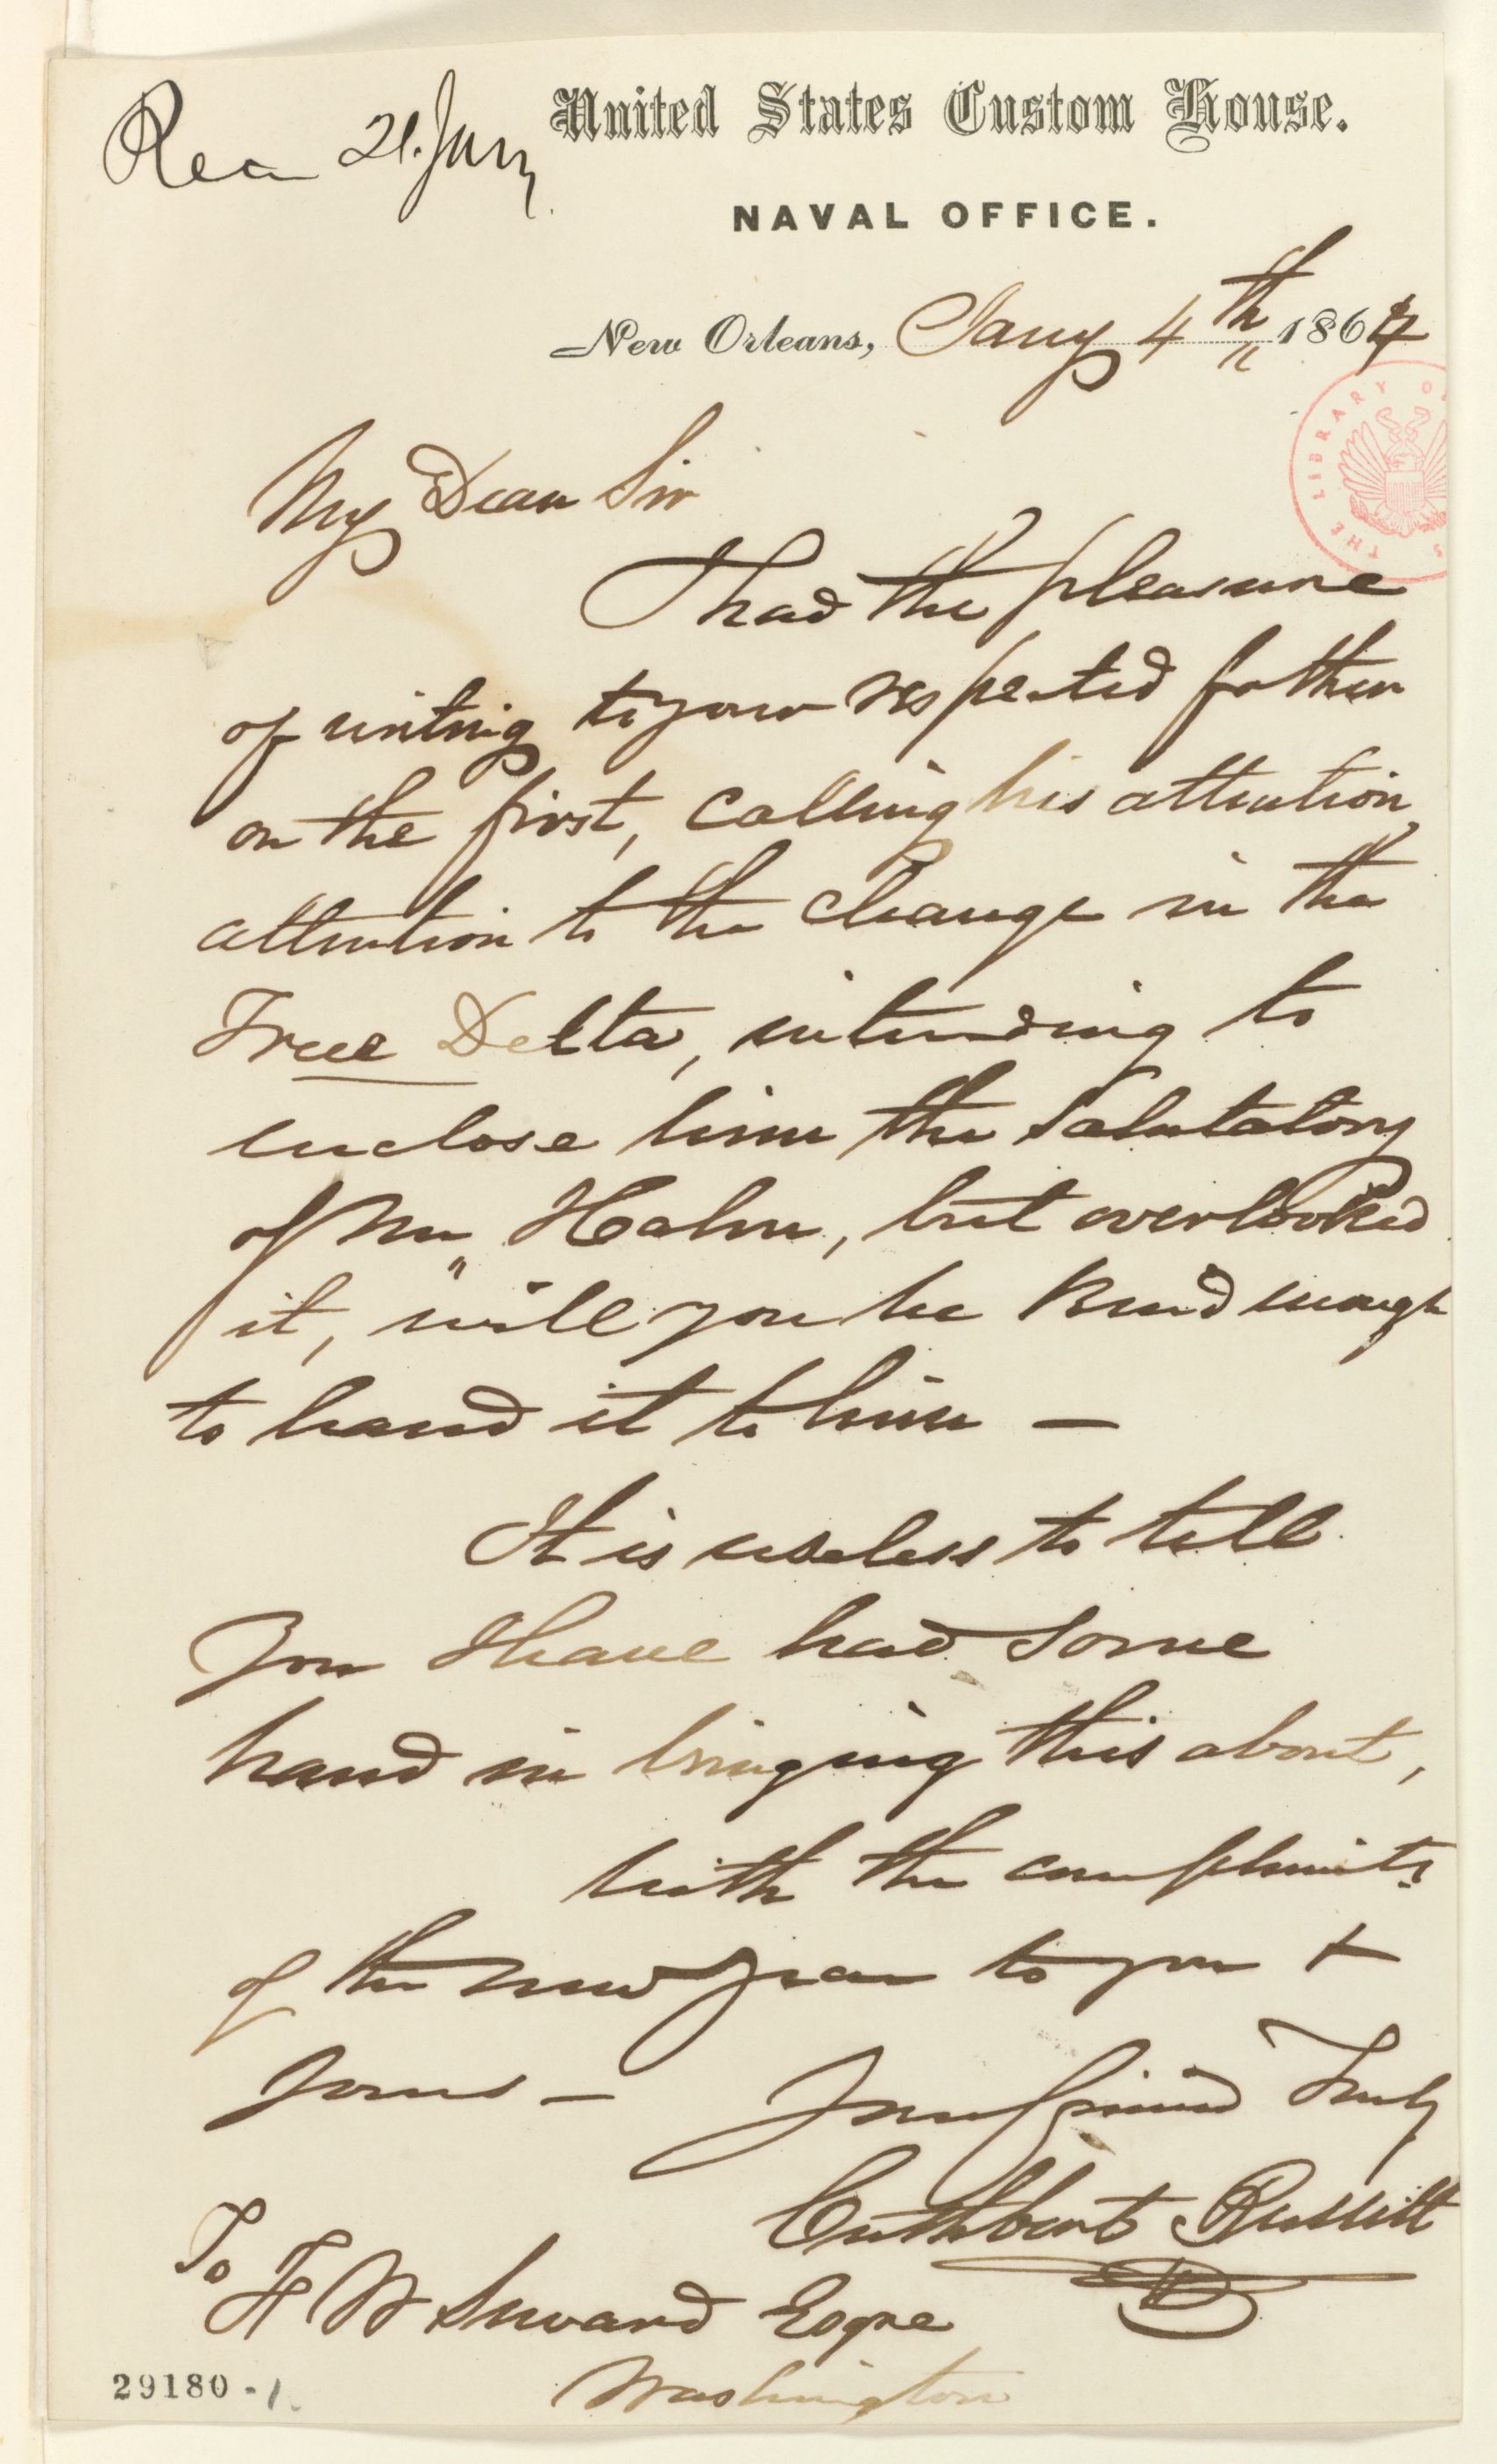 Rec 21. Jany
United States Custom House.
NAVAL OFFICE.
New Orleans, Jany 4th 1864
THE LIBRARY OF
My Dear Sir
I had the pleasure
of writing to your respected father
on the first, calling his attention,
attention to the change in the
True Delta, intending to
enclose him the Salutatory
of Mr Hahn, but overlooked
it, will you be kind enough
to hand it to him —
It is useless to tell
you I have had some
hand in bringing this about,
with the compliments
of the new year to you &
yours — Your friend Truly
Cuthbert Bullitt
To
F W Seward Esqre
Washington
29180-1.